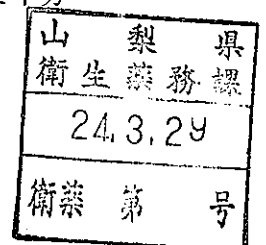 山梨県
衛生薬務課
24.3.29
衛薬第 号